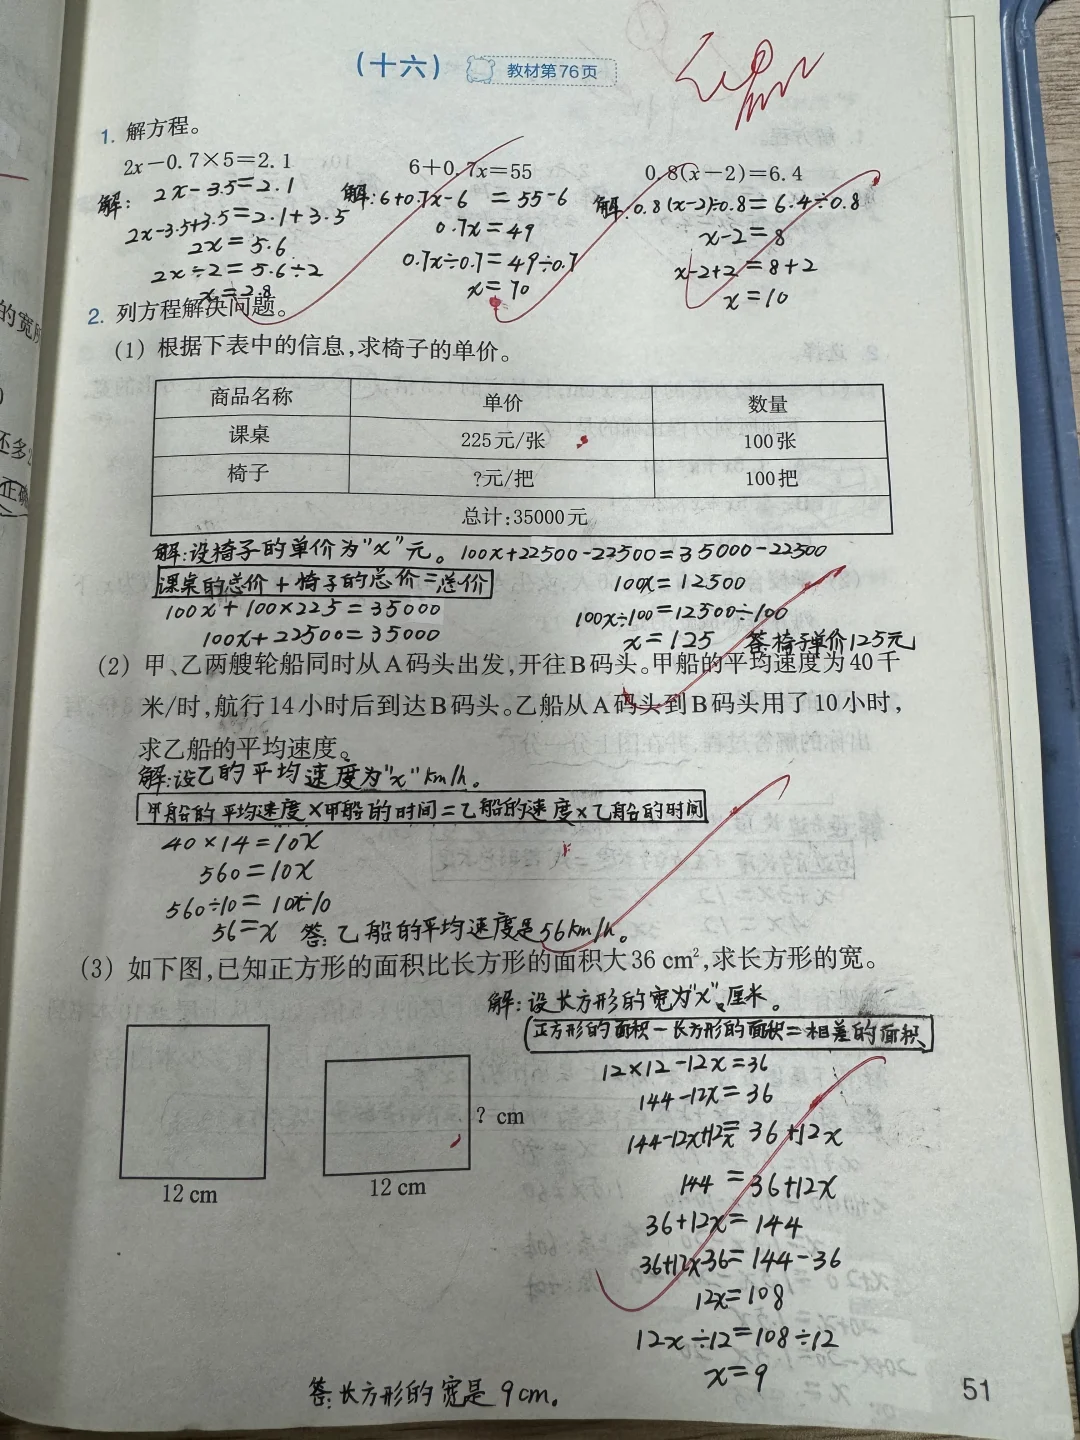 (十六) 教材第76页
1. 解方程。
2x-0.7×5=2.1 6+0.7x=55 0.8(x-2)=6.4
解: 2x-3.5=2.1 解:6+0.7x-6 =55-6 解:0.8(x-2)÷0.8=6.4÷0.8
2x-3.5+3.5=2.1+3.5 0.7x=49 x-2=8
2x=5.6 0.7x÷0.7=49÷0.7 x-2+2=8+2
2x÷2=5.6÷2 x=70 x=10
x=2.8
2. 列方程解决问题。
(1) 根据下表中的信息,求椅子的单价。
商品名称 单价 数量
课桌 225元/张 100张
椅子 ?元/把 100把
总计:35000元
解:设椅子的单价为"x"元。 100x+22500-22500=35000-22500
课桌的总价+椅子的总价=总价 100x=12500
100x+100×225=35000 100x÷100=12500÷100
100x+22500=35000 x=125 答:椅子单价125元
(2) 甲、乙两艘轮船同时从A码头出发,开往B码头。甲船的平均速度为40千
米/时,航行14小时后到达B码头。乙船从A码头到B码头用了10小时,
求乙船的平均速度。
解:设乙的平均速度为"x"km/h。
甲船的平均速度×甲船的时间=乙船的速度×乙船的时间
40×14=10x
560=10x
560÷10=10x÷10
56=x 答:乙船的平均速度是56km/h。
(3) 如下图,已知正方形的面积比长方形的面积大36 cm²,求长方形的宽。
解:设长方形的宽为"x"厘米。
正方形的面积-长方形的面积=相差的面积
12×12-12x=36
144-12x=36
? cm
144-12x+12x=36+12x
144=36+12x
12 cm 12 cm
36+12x=144
36+12x-36=144-36
12x=108
12x÷12=108÷12
x=9
答:长方形的宽是9cm。
51